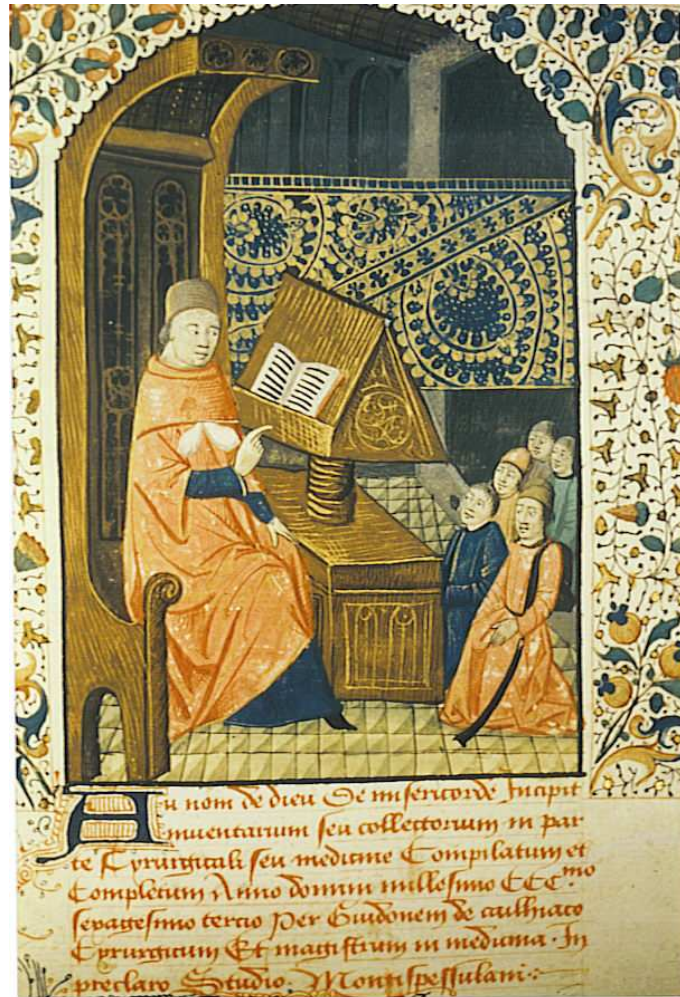 Au nom de dieu De misericorde Incipit
inuentarium seu collectorium in par
te Cyrurgicali seu medicine Compilatum et
Completum Anno domini millesimo CCC.mo
sepagesimo tercio Per Guidonem de caulhiaco
Cyrurgicum Et magistrum in medicina. In
preclaro Studio. Montispessulani